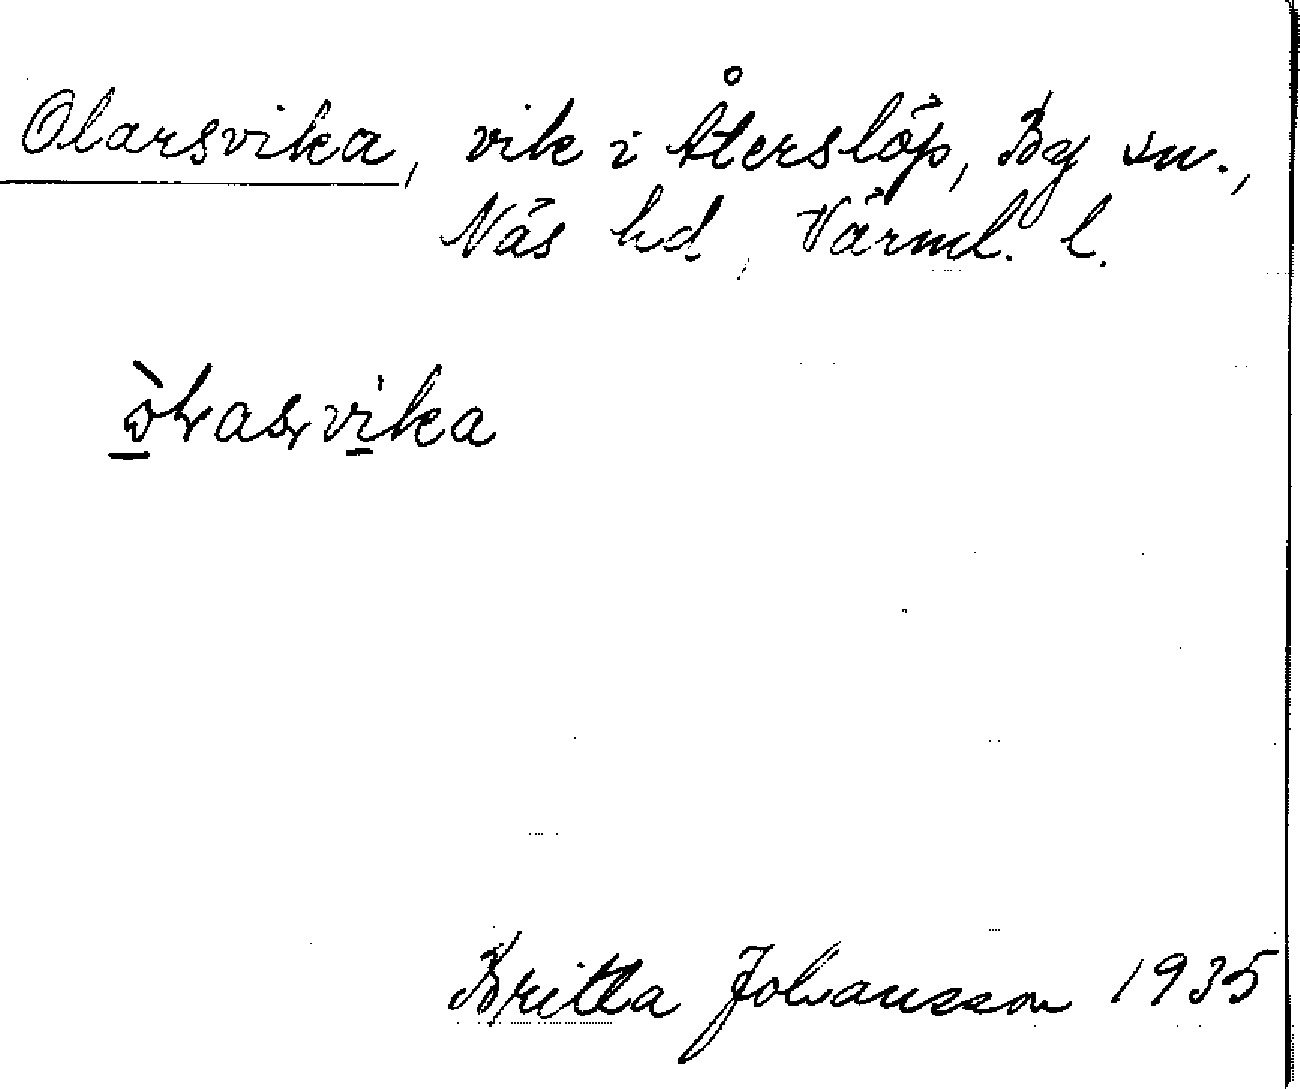 Olarsvika, vik i Återslöp, By sn.,
Näs hd, Värml. l.
Britta Johansson 1935